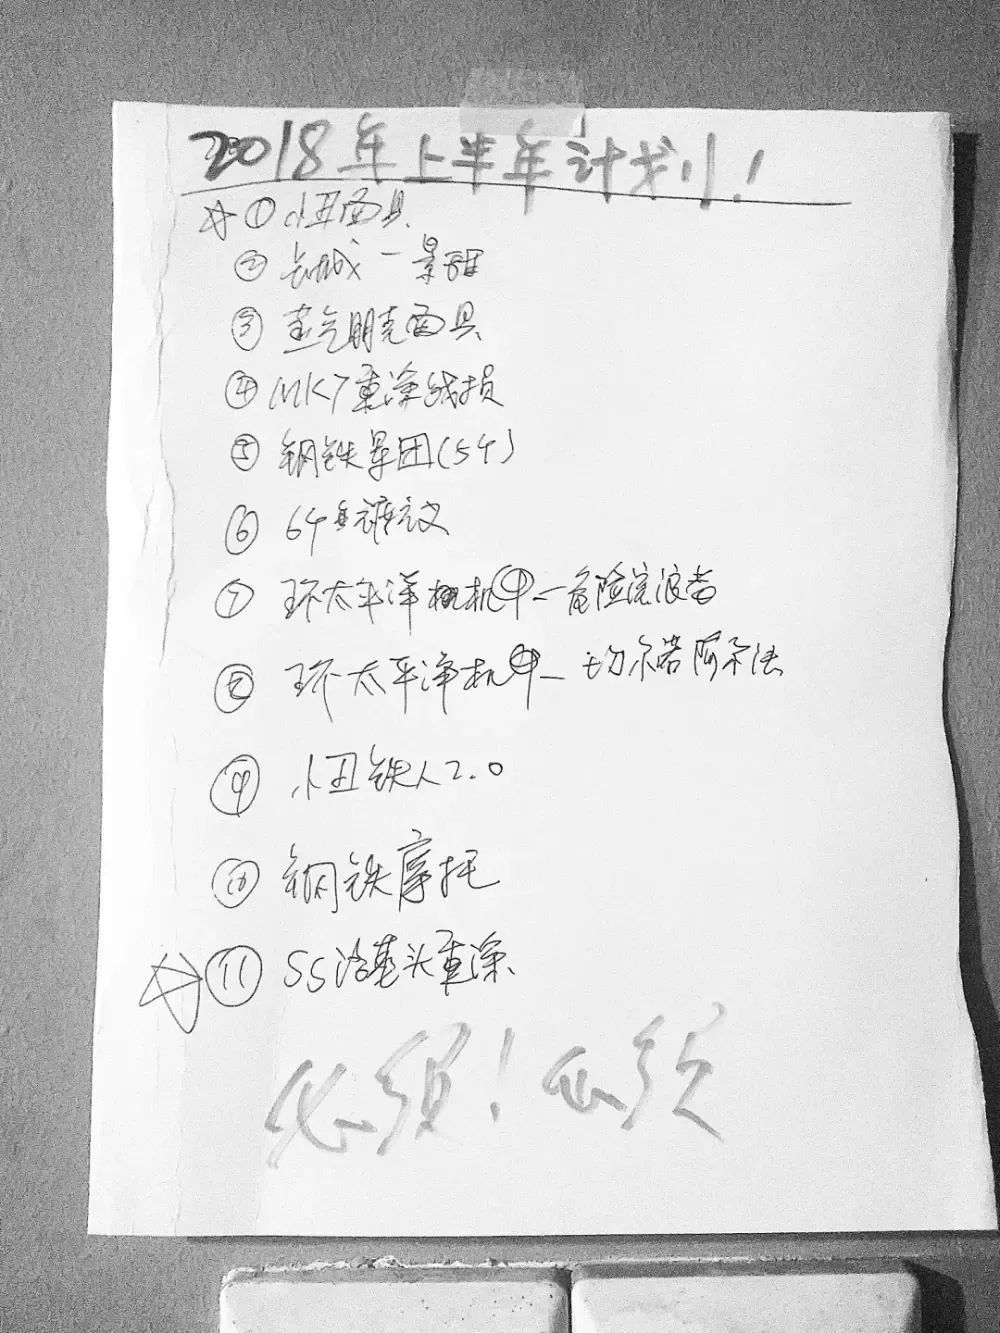 2018年上半年计划！
☆ ① 小丑面具
② 长城一景甜
③ 蒸气朋克面具
④ MK7重涂战损
⑤ 钢铁军团(54)
⑥ 64
⑦ 环太平洋机甲—危险流浪者
⑧ 环太平洋机甲—切尔诺阿尔法
⑨ 小丑铁人2.0
⑩ 钢铁摩托
☆ ⑪ SS洛基头重涂
必须！必须